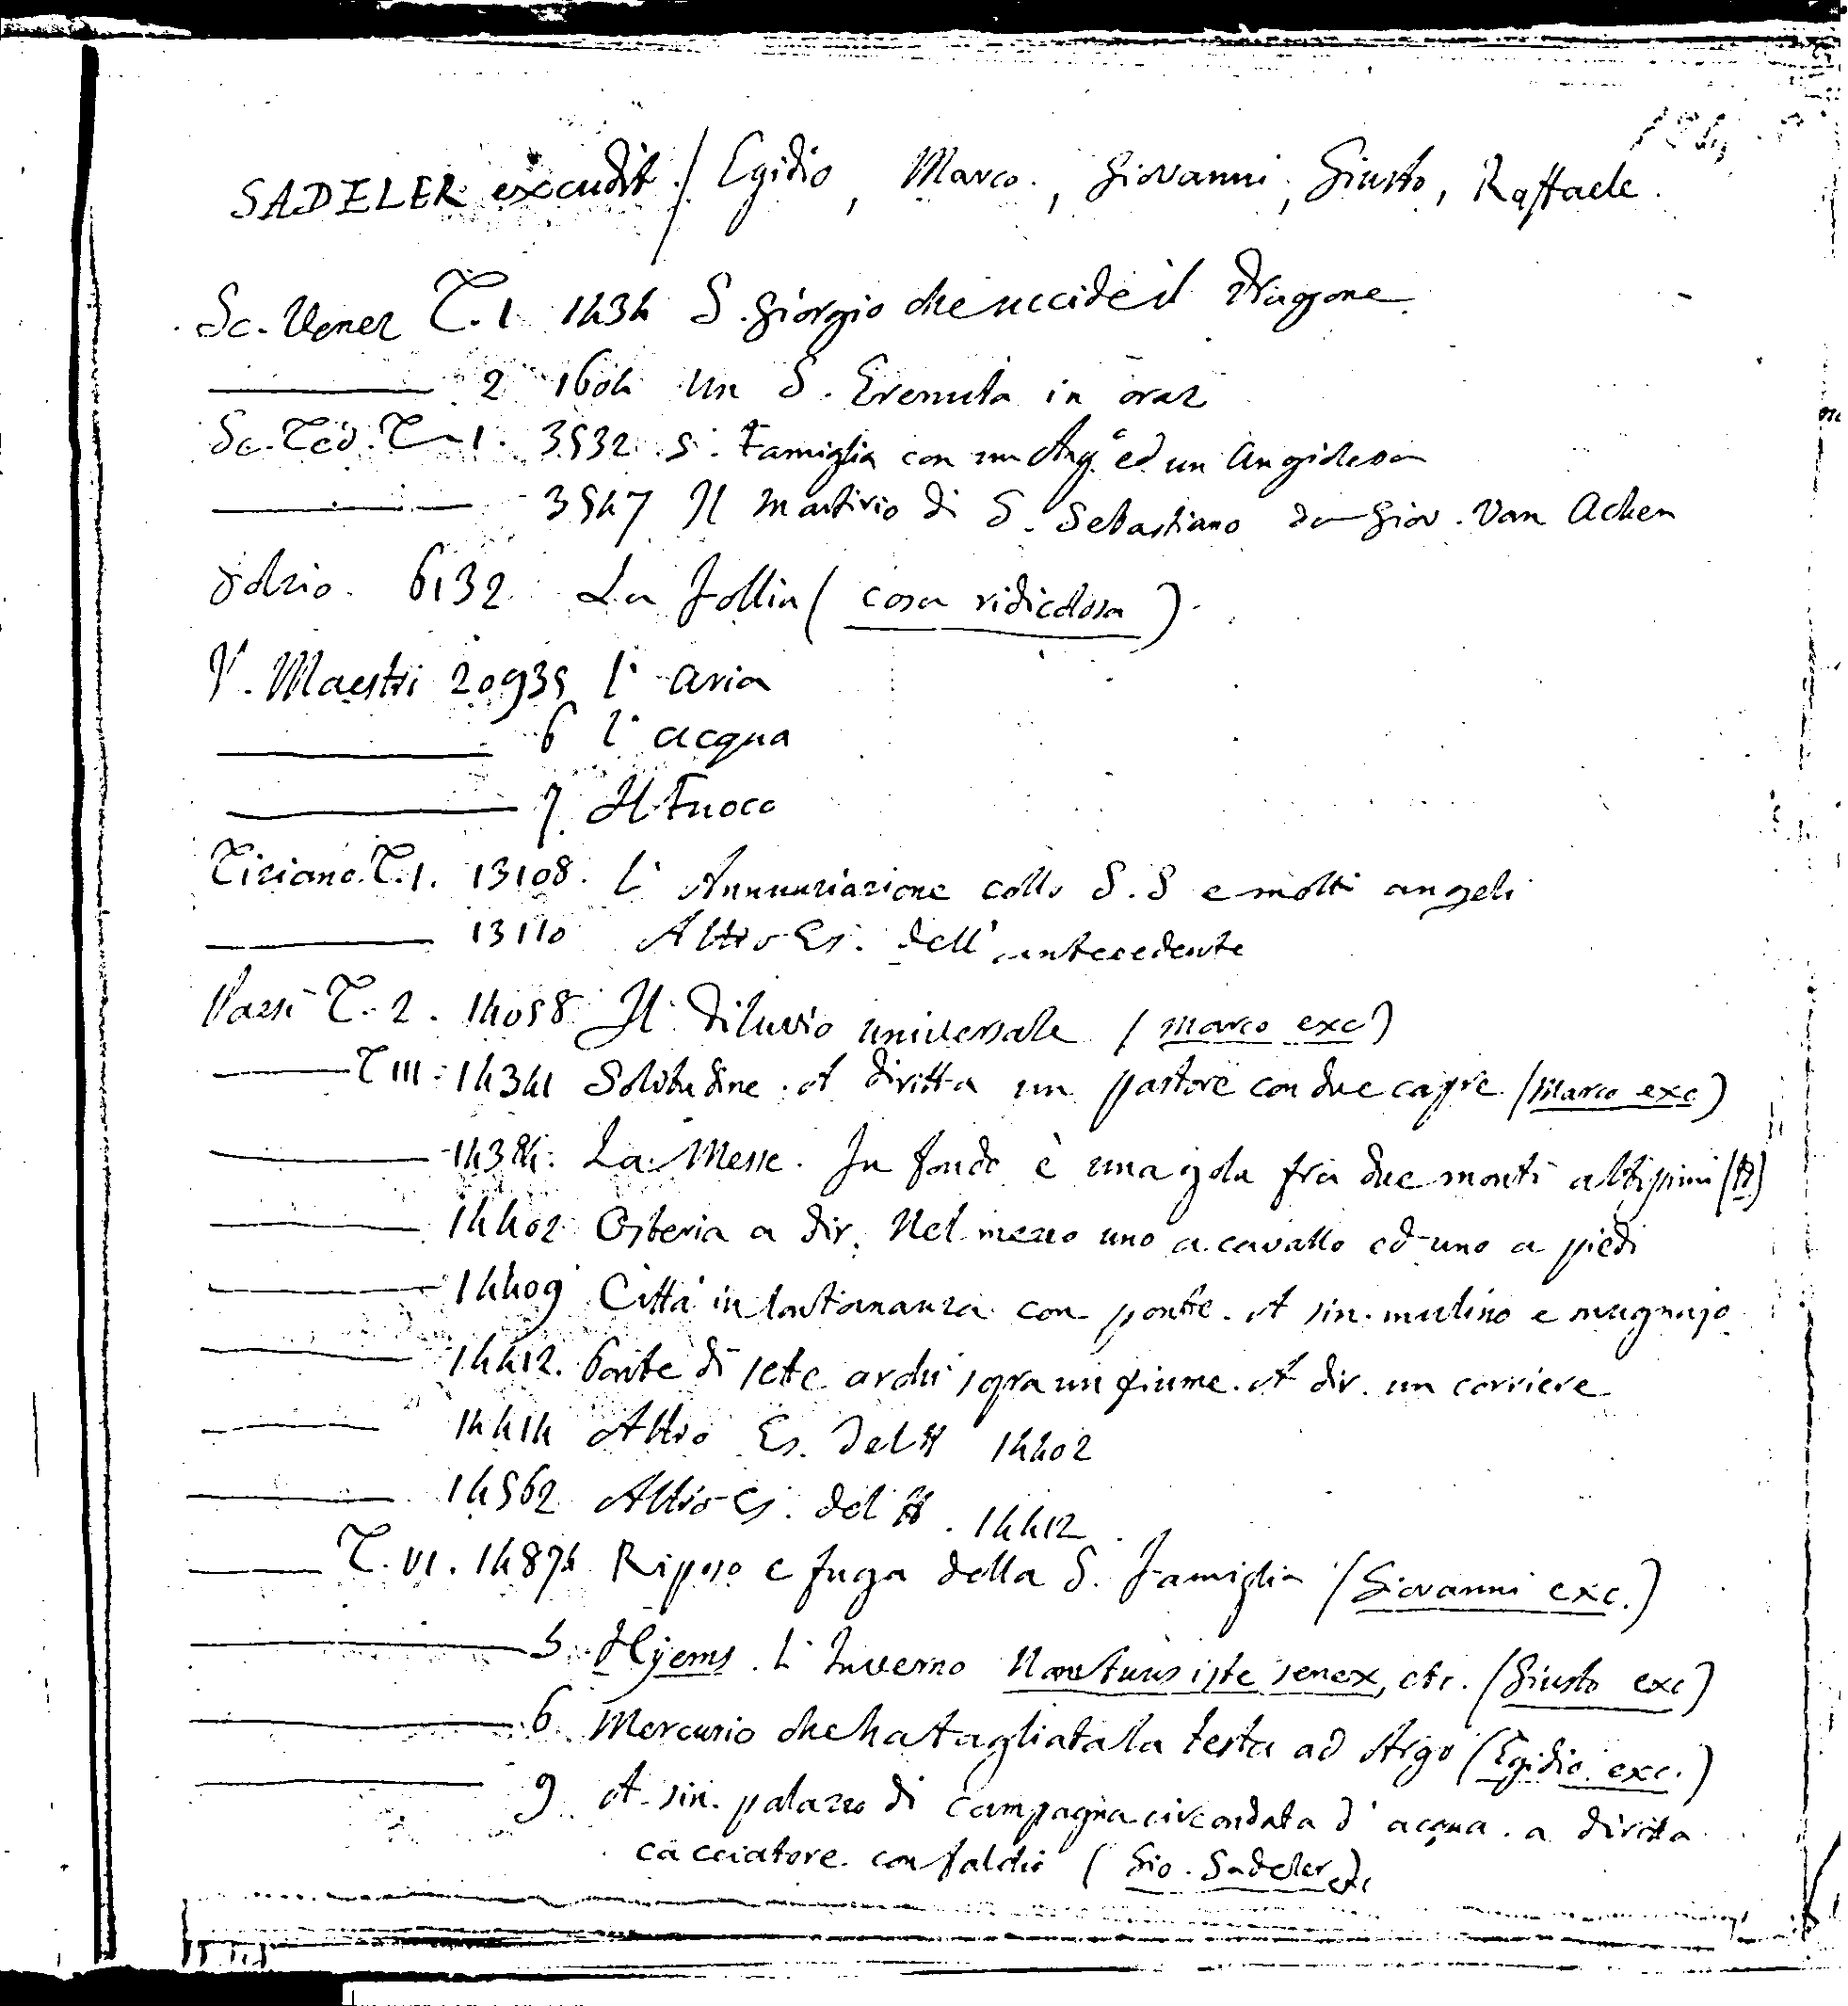 SADELER excudit / Egidio, Marco, Giovanni, Giusto, Raffaele.
Sc. Venez T. 1 1434 S. Giorgio che uccide il Dragone
2 1604 Un S. Eremita in oraz
Sc. Ted. T. 1. 3532 S. Famiglia con un Ang.e ed un
3547 Il martirio di S. Sebastiano da Giov. Van Achen
6132 La follia (cosa ridicolosa).
V. Maestri 20935 l'aria
6 l'acqua
7. Il Fuoco
Tiziano. T. 1. 13108. L'Annunziazione collo S.S e molti angeli
13110 Altro Es. dell'antecedente
T. 2. 14058 Il diluvio universale (marco exc)
T III. 14341 Solitudine. A diritta un pastore con due capre (Marco exc)
14384. La Messe. In fondo è una gola fra due monti altissimi
14402 Osteria a dir. Nel mezzo uno a cavallo ed uno a piedi
14409 Città in lontananza con ponte. A sin. mulino e mugnajo
14412. Ponte di sette archi sopra un fiume. A dir. un corriere
14414 Altro Es. del # 14402
14562 Altro Es. del #. 14412.
T. VI. 14874 Riposo e fuga della S. Famiglia (Giovanni exc.)
5. Hyems. L'Inverno iste senex, etc. (Giusto exc)
6 Mercurio che ha tagliata la testa ad Argo (Egidio exc.)
9 A sin. palazzo di campagna circondata d'acqua. a diritta
cacciatore con falchi (Gio. Sadeler exc